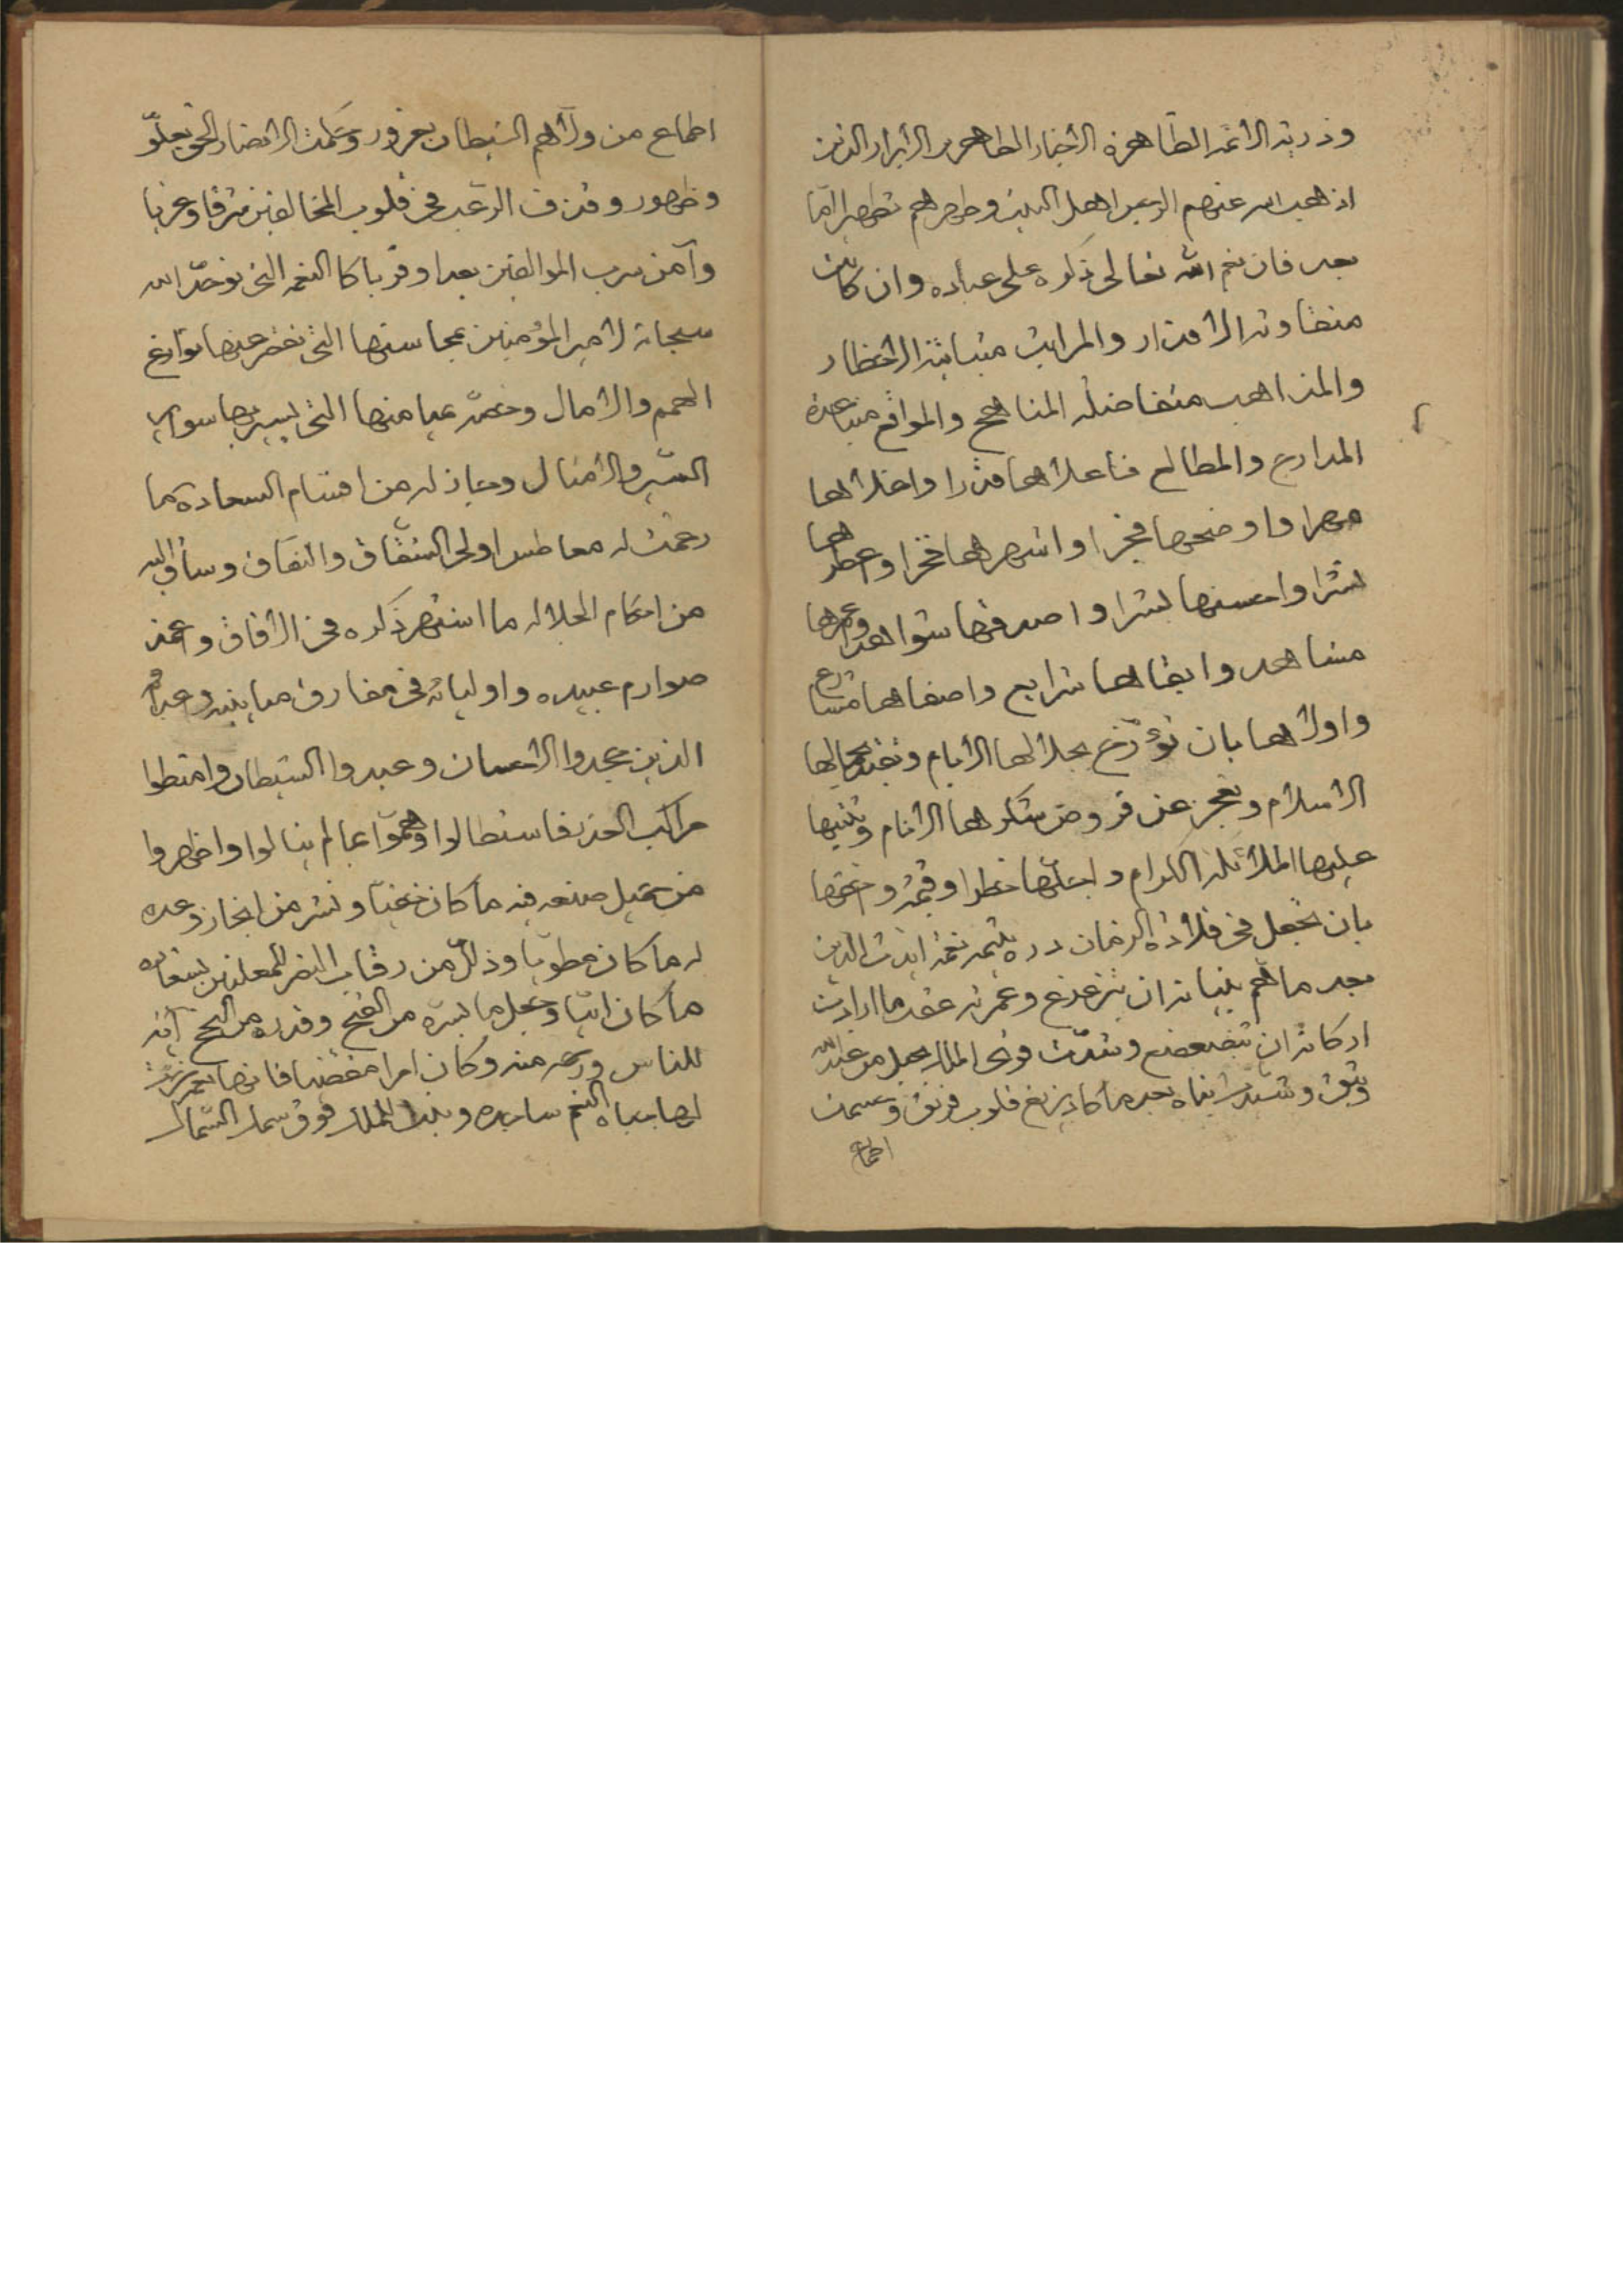 وذريته الائمه الطاهرة الاخيار الطاهرين الابرار الذين
اذهب الله عنهم الرجس اهل البيت وطهرهم تطهيرا امّا
بعد فان نعم الله تعالى ذكره على عباده وان كانت
متفاوته الاقدار والمراتب متباينة الاخطار
والمذاهب متفاضله المناهج والمواقع متباعدة
المدارع والمطالع فاعلاها قدرا واغلاها
مهرا واوضحها فجرا واشهرها فخرا واعطرها
نشرا واحسنها بشرا واصدقها شواهدا واعمرها
مشاهد وابقاها شرايع واصفاها مشارع
واولاها بان تؤرّخ بجلالها الايام وتفتخر بجمالها
الاسلام وتعجز عن فروض شكرها الانام وتثنيها
عليها الملائكة الكرام واجلّها خطرا وقيمة واحقها
بان تجعل في قلادة الزمان درة يتيمه نعمة ايدت الدين
بعد ما همّ بنيانه ان يتزعزع وعمرته عقد ما ارادت
اركانه ان تتضعضع وشدّت قوى الملك بحبل من عند الله
وثيق وشيدت بناه بعد ما كاد يزيغ قلوب فريق وحسمت
اطماع
اطماع من ولّاهم الشيطان بغرور وحكمت لانصار الحق بعلوّ
وظهور وقذف الرعب في قلوب المخالفين شرقا وغربا
وآمن سرب الموالفين بعدا وقربا كالنعمه التي توحّد الله
سبحانه لامير المؤمنين بمحاسنها التي تقصر عنها نوازع
الهمم والامال وخصّه بميامنها التي يسير بها سواير
السير والامثال وحاز له من اقسام السعادة ما
رغمت له معاطس اولى الشقاق والنفاق وساق اليه
من احكام الجلاله ما اشتهر ذكره في الافاق واغمد
صوارم عبيده واوليائه في مفارق مباينيه وعداه
الذين جحدوا الاحسان وعبدوا الشيطان وامتطوا
مراكب الغدر فاستطالوا وهمّوا بما لم ينالوا واظهروا
من جميل صنعه فيه ما كان خفيّا ونشر من انجاز وعده
له ما كان مطويّا وذلّل من رقاب النفر المعلنين بشقاقه
ما كان ابيّا وجعل ما يسّره من الفتح وقدره من النجح آية
للناس ورحمة منه وكان امرا مقضيا فانها نعمة عزت
لها جباه النعم ساجده وبيد الملك فوق سماء السماك